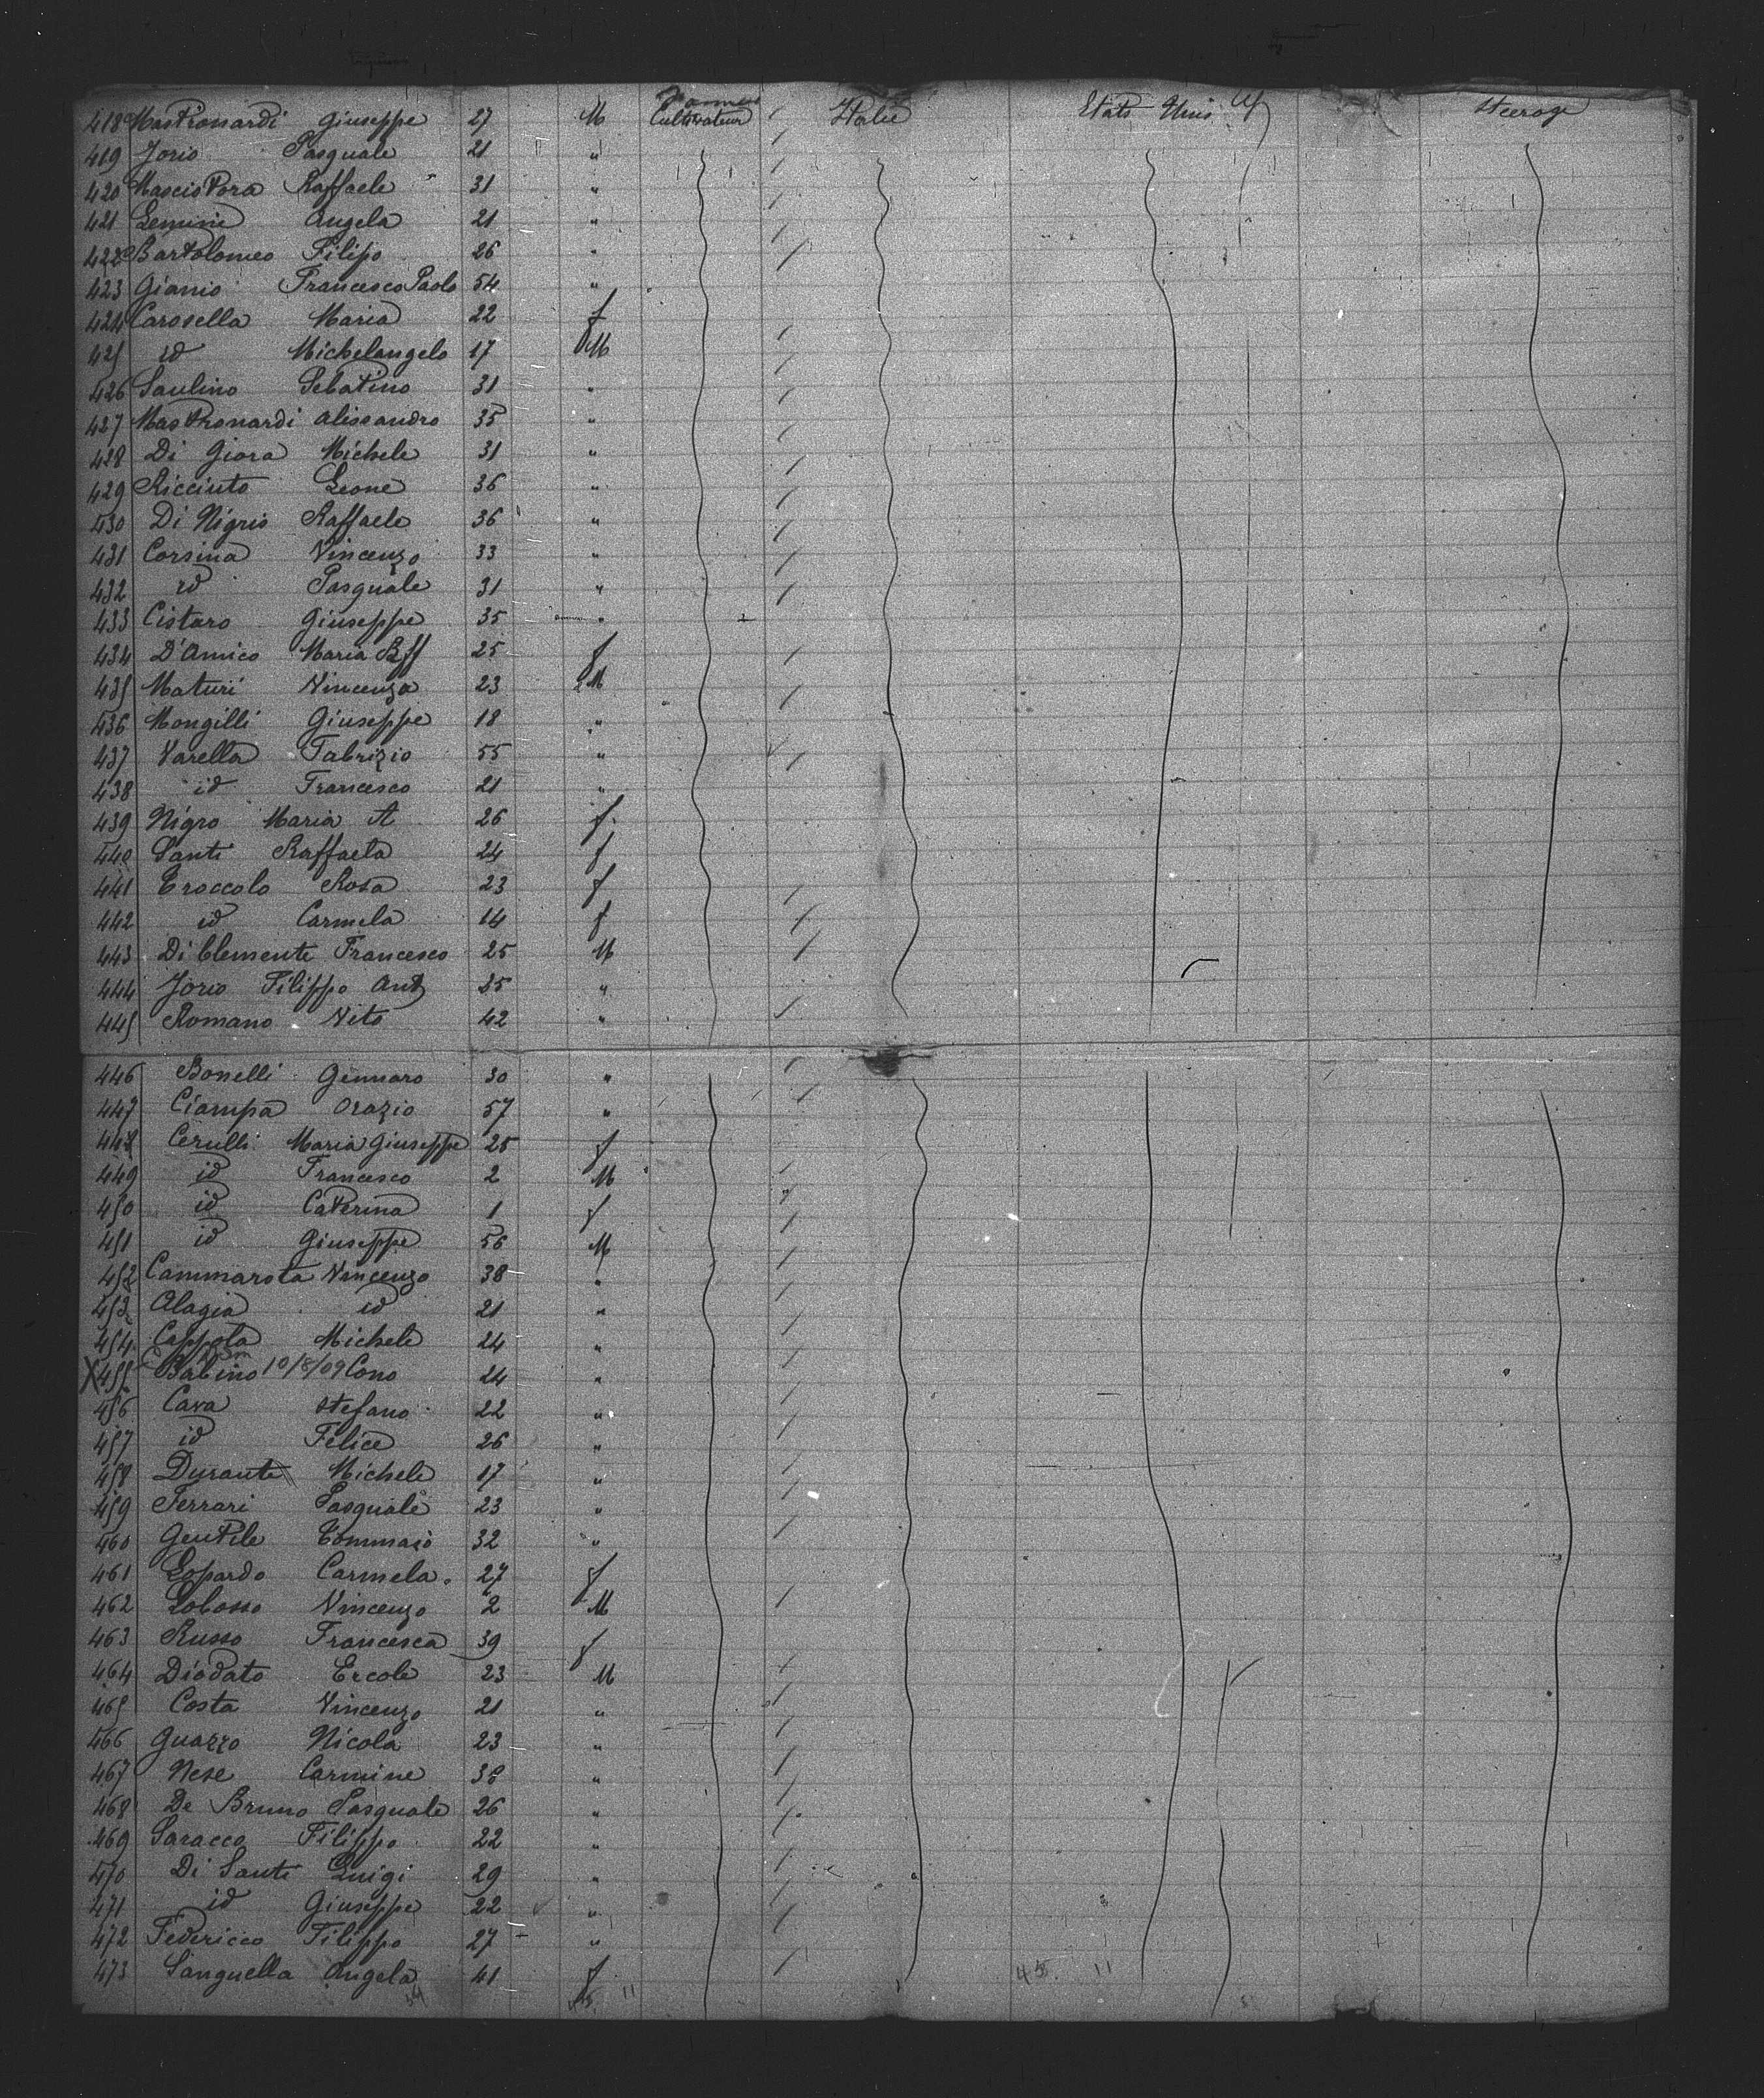 418 Mastronardi Giuseppe 27 M Farmer Cultivateur Italie Etats Unis steerage
419 Jorio Pasquale 21 "
420 Masciotora Raffaele 31 "
421 Lemme Angela 21 "
422 Bartolomeo Filipo 26 "
423 Gianio Francesco Paolo 54 "
424 Carosella Maria 22 f
425 id Michelangelo 17 M
426 Saulino Sebatino 31 "
427 Mastronardi Alissandro 35 "
428 Di Giora Michele 31 "
429 Ricciuto Leone 36 "
430 Di Nigris Raffaele 36 "
431 Corsina Vincenzo 33 "
432 id Pasquale 31 "
433 Cistaro Giuseppe 35 "
434 D'Amico Maria Raff 25 f
435 Maturi Vincenzo 23 M
436 Mongilli Giuseppe 18 "
437 Varella Fabrizio 55 "
438 id Francesco 21 "
439 Nigro Maria A 26 f
440 Santi Raffaela 24 f
441 Croccolo Rosa 23 f
442 id Carmela 14 f
443 Di Clemente Francesco 25 M
444 Jorio Filippo Ant 35 "
445 Romano Vito 42 "
446 Bonelli Gennaro 30 "
447 Ciampa Orazio 57 "
448 Cerulli Maria Giuseppe 25 f
449 id Francesco 2 M
450 id Caterina 1 f
451 id Giuseppe 56 M
452 Cammarota Vincenzo 38 "
453 Alagia id 21 "
454 Cappola Michele 24 "
X 455 Babino 10/8/09 Cono 24 "
456 Cava Stefano 22 "
457 id Felice 26 "
458 Durante Michele 17 "
459 Ferrari Pasquale 23 "
460 Gentile Tommaso 32 "
461 Lopardo Carmela 27 f
462 Lobosso Vincenzo 2 M
463 Russo Francesca 39 f
464 Diodato Ercole 23 M
465 Costa Vincenzo 21 "
466 Guazzo Nicola 23 "
467 Nese Carmine 38 "
468 De Bruno Pasquale 26 "
469 Saracco Filippo 22 "
470 Di Santi Luigi 29 "
471 id Giuseppe 22 "
472 Federicco Filippo 27 "
473 Sanguella Angela 41 f
45 11